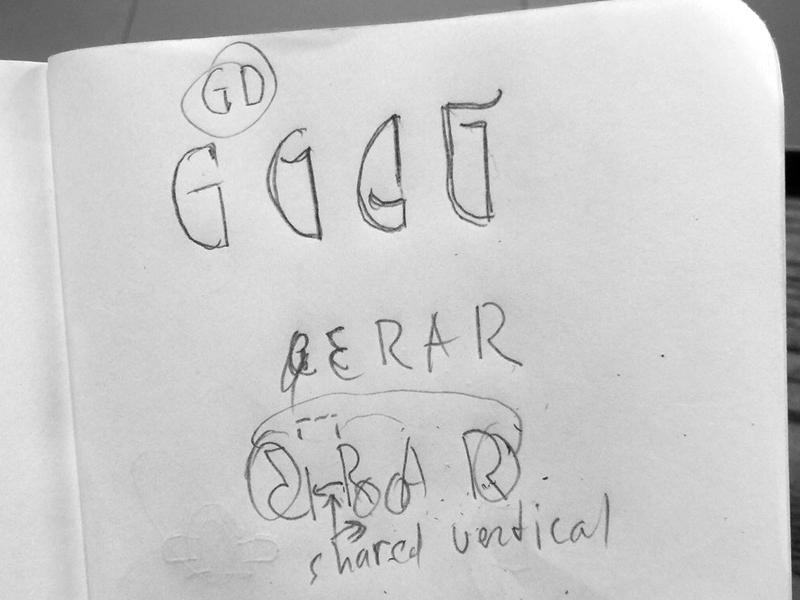 GD
G G G G
GERAR
shared vertical